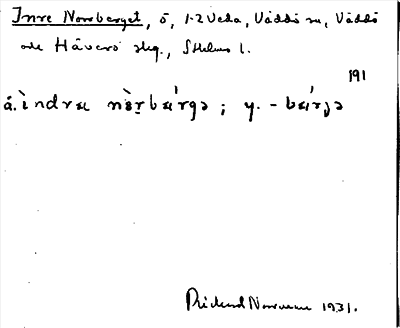 Inre Norrberget, ö, 1-2 Veda, Väddö sn, Väddö
och Häverö skg., Sthlms l.
191
ä. ìndræ nòṛbǽrgə ; y. - bǽrjə
Rickard Norrman 1931.